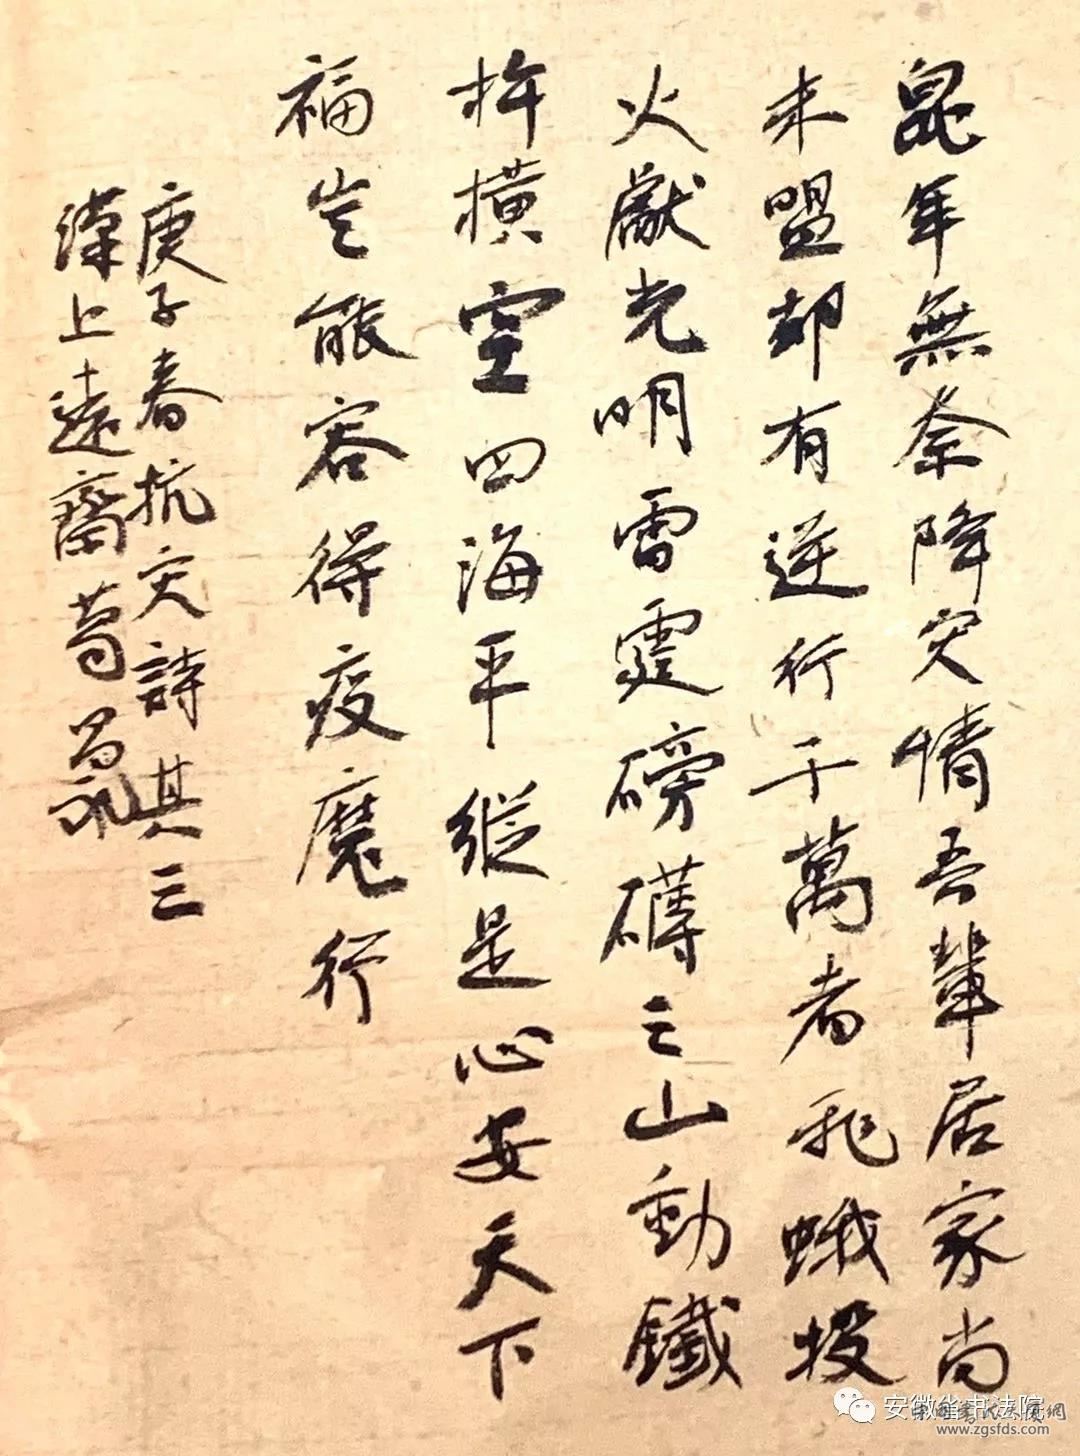 鼠年無奈降灾情吾輩居家尚
未盟却有逆行千萬者飛蛾投
火獻光明雷霆磅礴之山動鐵
杵横空四海平縱是心安天下
福豈能容得疫魔行
庚子春抗灾詩其三
漢上遠齋葛昌永
安徽省书法院
www.zgsfds.com